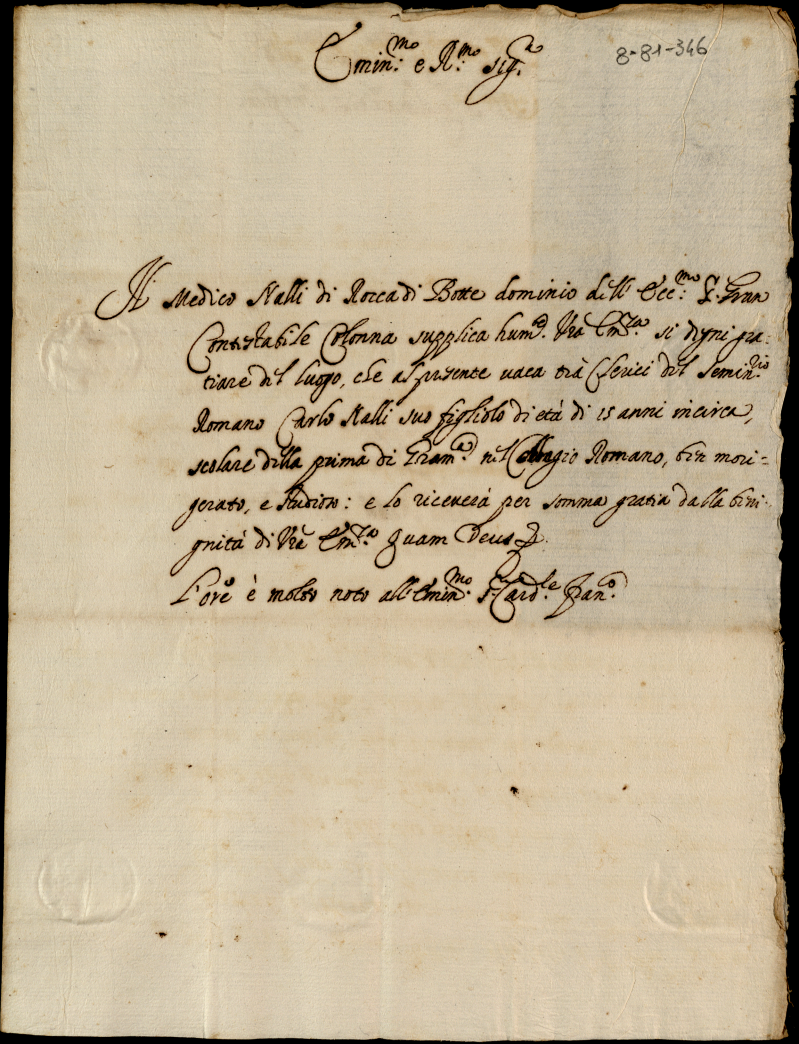 8-81-346
Emin.mo e R.mo sig.r
Il Medico Nalli di Rocca di Botte dominio dell' Ecc.mo S. Gran
Contestabile Colonna supplica hum.e V̄ra Em.za si degni gra-
tiare del luogo, che al presente vaca trà Clerici del Semin.rio
Romano Carlo Nalli suo figliolo di età di 15 anni incirca,
scolare della prima di Gram.a nel Collegio Romano, ben mori-
gerato, e studioso: e lo riceverà per somma gratia dalla beni-
gnità di V̄ra Em.za Quam Deus
L'ore è molto noto all' Emin.mo S. Card.le Fran.o